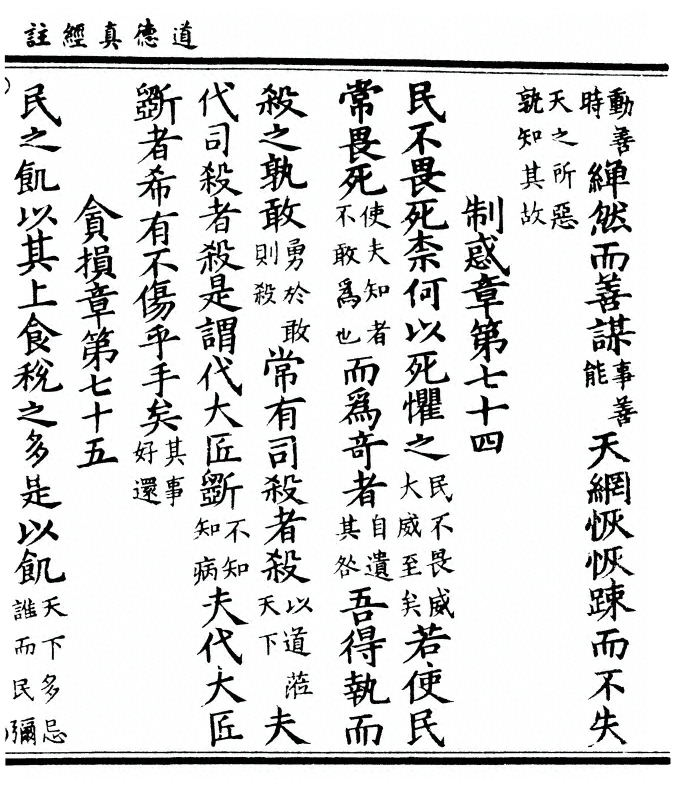 道德真經註
動善時天之所惡孰知其故
繟然而善謀事善能天網恢恢踈而不失
制惑章第七十四
民不畏死柰何以死懼之民不畏威大威至矣若使民
常畏死使夫知者不敢爲也而爲奇者自遺其咎吾得執而
殺之孰敢勇於敢則殺常有司殺者殺以道蒞天下夫
代司殺者殺是謂代大匠斵不知知病夫代大匠
斵者希有不傷乎手矣其事好還
貪損章第七十五
民之飢以其上食稅之多是以飢天下多忌諱而民彌